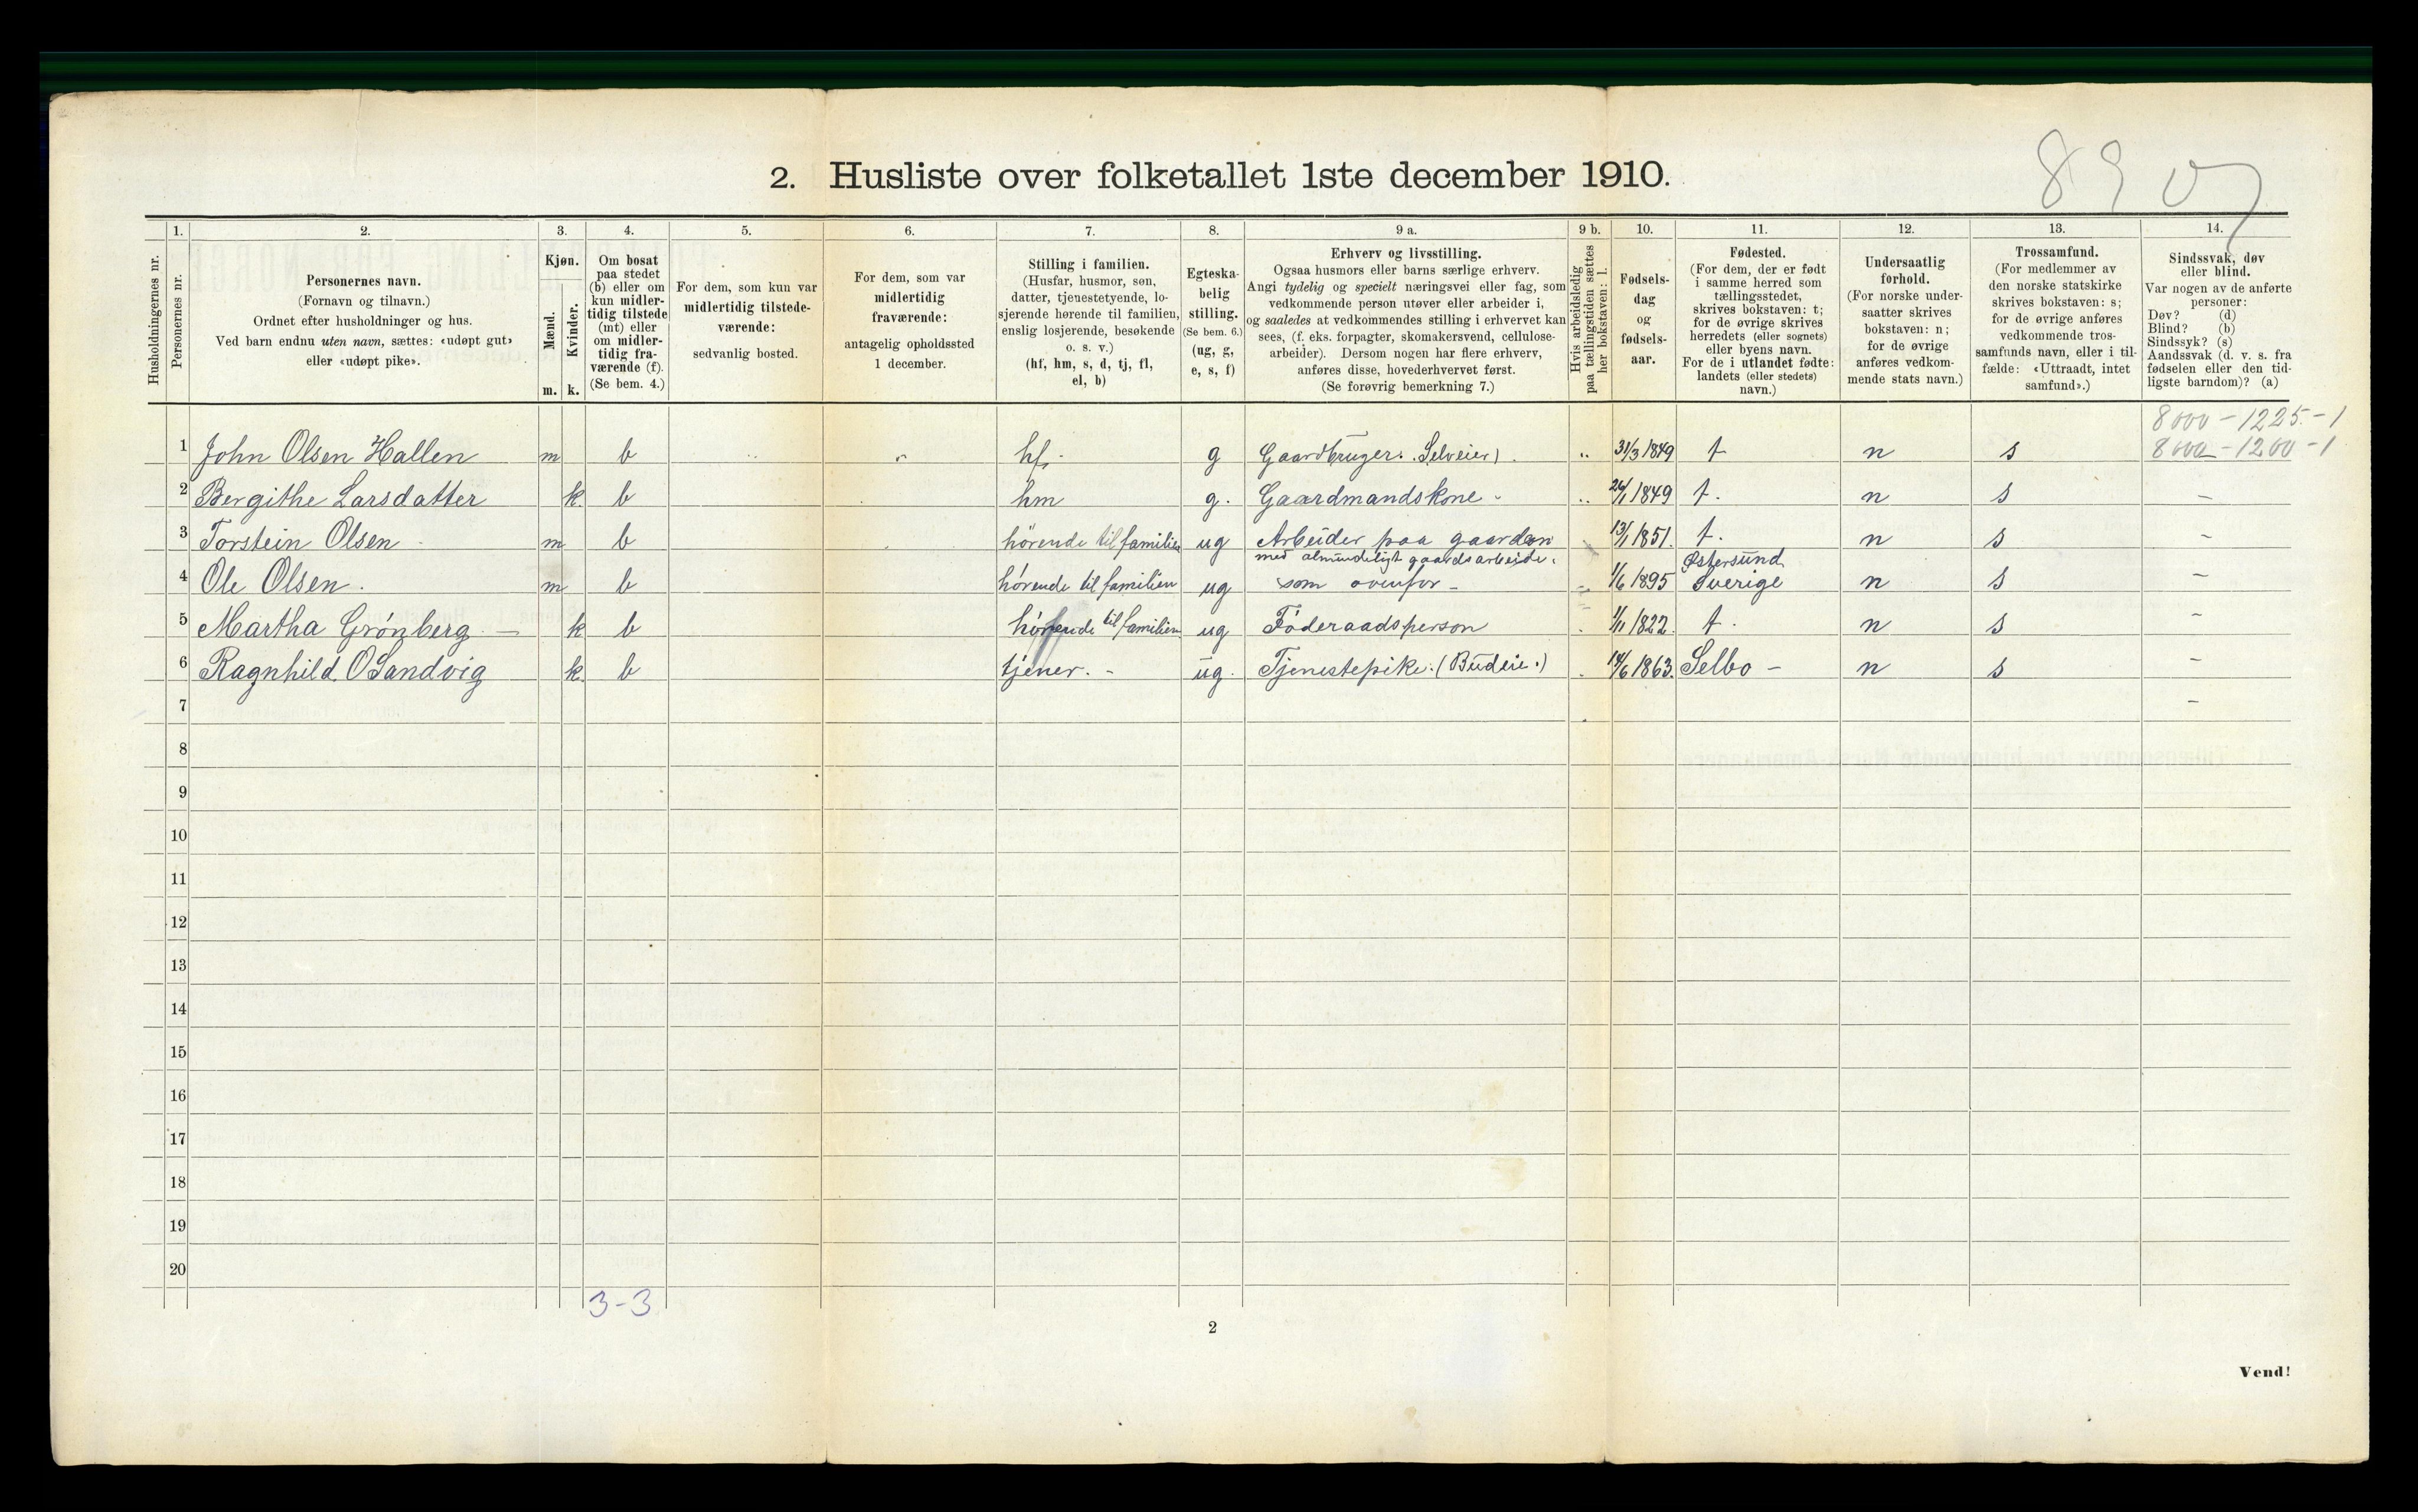 2. Husliste over folketallet 1ste december 1910.
1. 2. 3. 4. 5. 6. 7. 8. 9 a. 9 b. 10. 11. 12. 13. 14.
Husholdningernes nr.
Personernes nr.
Personernes navn.
(Fornavn og tilnavn.)
Ordnet efter husholdninger og hus.
Ved barn endnu uten navn, sættes: «udøpt gut»
eller «udøpt pike».
Kjøn.
Mænd.
Kvinder.
m. k.
Om bosat
paa stedet
(b) eller om
kun midler-
tidig tilstede
(mt) eller
om midler-
tidig fra-
værende (f).
(Se bem. 4.)
For dem, som kun var
midlertidig tilstede-
værende:
sedvanlig bosted.
For dem, som var
midlertidig
fraværende:
antagelig opholdssted
1 december.
Stilling i familien.
(Husfar, husmor, søn,
datter, tjenestetyende, lo-
sjerende hørende til familien,
enslig losjerende, besøkende
o. s. v.)
(hf, hm, s, d, tj, fl,
el, b)
Egteska-
belig
stilling.
(Se bem. 6.)
(ug, g,
e, s, f)
Erhverv og livsstilling.
Ogsaa husmors eller barns særlige erhverv.
Angi tydelig og specielt næringsvei eller fag, som
vedkommende person utøver eller arbeider i,
og saaledes at vedkommendes stilling i erhvervet kan
sees, (f. eks. forpagter, skomakersvend, cellulose-
arbeider). Dersom nogen har flere erhverv,
anføres disse, hovederhvervet først.
(Se forøvrig bemerkning 7.)
Hvis arbeidsledig
paa tællingstiden sættes
her bokstaven: l.
Fødsels-
dag
og
fødsels-
aar.
Fødested.
(For dem, der er født
i samme herred som
tællingsstedet,
skrives bokstaven: t;
for de øvrige skrives
herredets (eller sognets)
eller byens navn.
For de i utlandet fødte:
landets (eller stedets)
navn.)
Undersaatlig
forhold.
(For norske under-
saatter skrives
bokstaven: n;
for de øvrige
anføres vedkom-
mende stats navn.)
Trossamfund.
(For medlemmer av
den norske statskirke
skrives bokstaven: s;
for de øvrige anføres
vedkommende tros-
samfunds navn, eller i til-
fælde: «Uttraadt, intet
samfund».)
Sindssvak, døv
eller blind.
Var nogen av de anførte
personer:
Døv? (d)
Blind? (b)
Sindssyk? (s)
Aandssvak (d. v. s. fra
fødselen eller den tid-
ligste barndom)? (a)
8000 - 1225 - 1
1 John Olsen Hallen m b hf. g Gaardbruger. (Selveier). 31/3 1849 t n s 8000 - 1200 - 1
2 Bergithe Larsdatter k. b hm g. Gaardmandskone - 26/1 1849 t. n s -
3 Torstein Olsen m b hørende til familien ug Arbeider paa gaarden 13/1 1851. t. n s -
med almindeligt gaardsarbeide. Østersund
4 Ole Olsen. m b hørende til familien ug som ovenfor - 1/6 1895 Sverige n s -
5 Martha Grønberg - k b hørende til familien ug Føderaadsperson 1/11 1822. t. n s -
6 Ragnhild. O Sandvig k. b tjener. - ug. Tjenestepike. (Budeie.) 14/6 1863. Selbo - n s -
7 -
8
9
10
11
12
13
14
15
16
17
18
19
20
3-3
2
Vend!